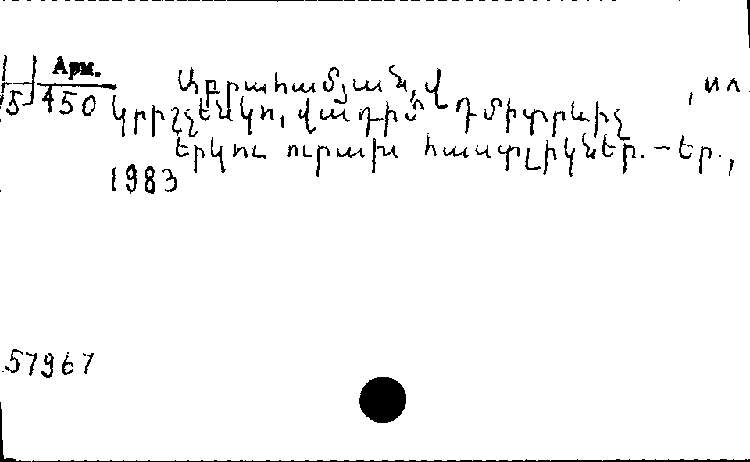 Арм.
450
5
Աբրահամյան, Վ , ил.
Կրիշչենկո, Վադիմ Դմիտրևիչ
Երկու ուրախ հասփլիկներ. - Եր.,
1983
57967